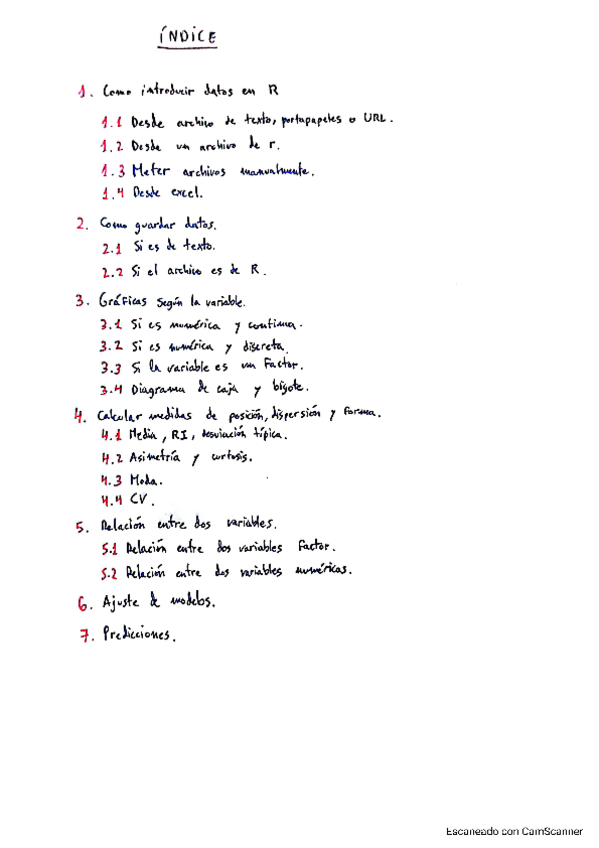 ÍNDICE
1. Como introducir datos en R
1.1 Desde archivo de texto, portapapeles o URL.
1.2 Desde un archivo de r.
1.3 Meter archivos manualmente.
1.4 Desde excel.
2. Como guardar datos.
2.1 Si es de texto.
2.2 Si el archivo es de R.
3. Gráficas según la variable.
3.1 Si es numérica y continua.
3.2 Si es numérica y discreta.
3.3 Si la variable es un Factor.
3.4 Diagrama de caja y bigote.
4. Calcular medidas de posición, dispersión y forma.
4.1 Media, RI, desviación típica.
4.2 Asimetría y curtosis.
4.3 Moda.
4.4 CV.
5. Relación entre dos variables.
5.1 Relación entre dos variables Factor.
5.2 Relación entre dos variables numéricas.
6. Ajuste de modelos.
7. Predicciones.
Escaneado con CamScanner